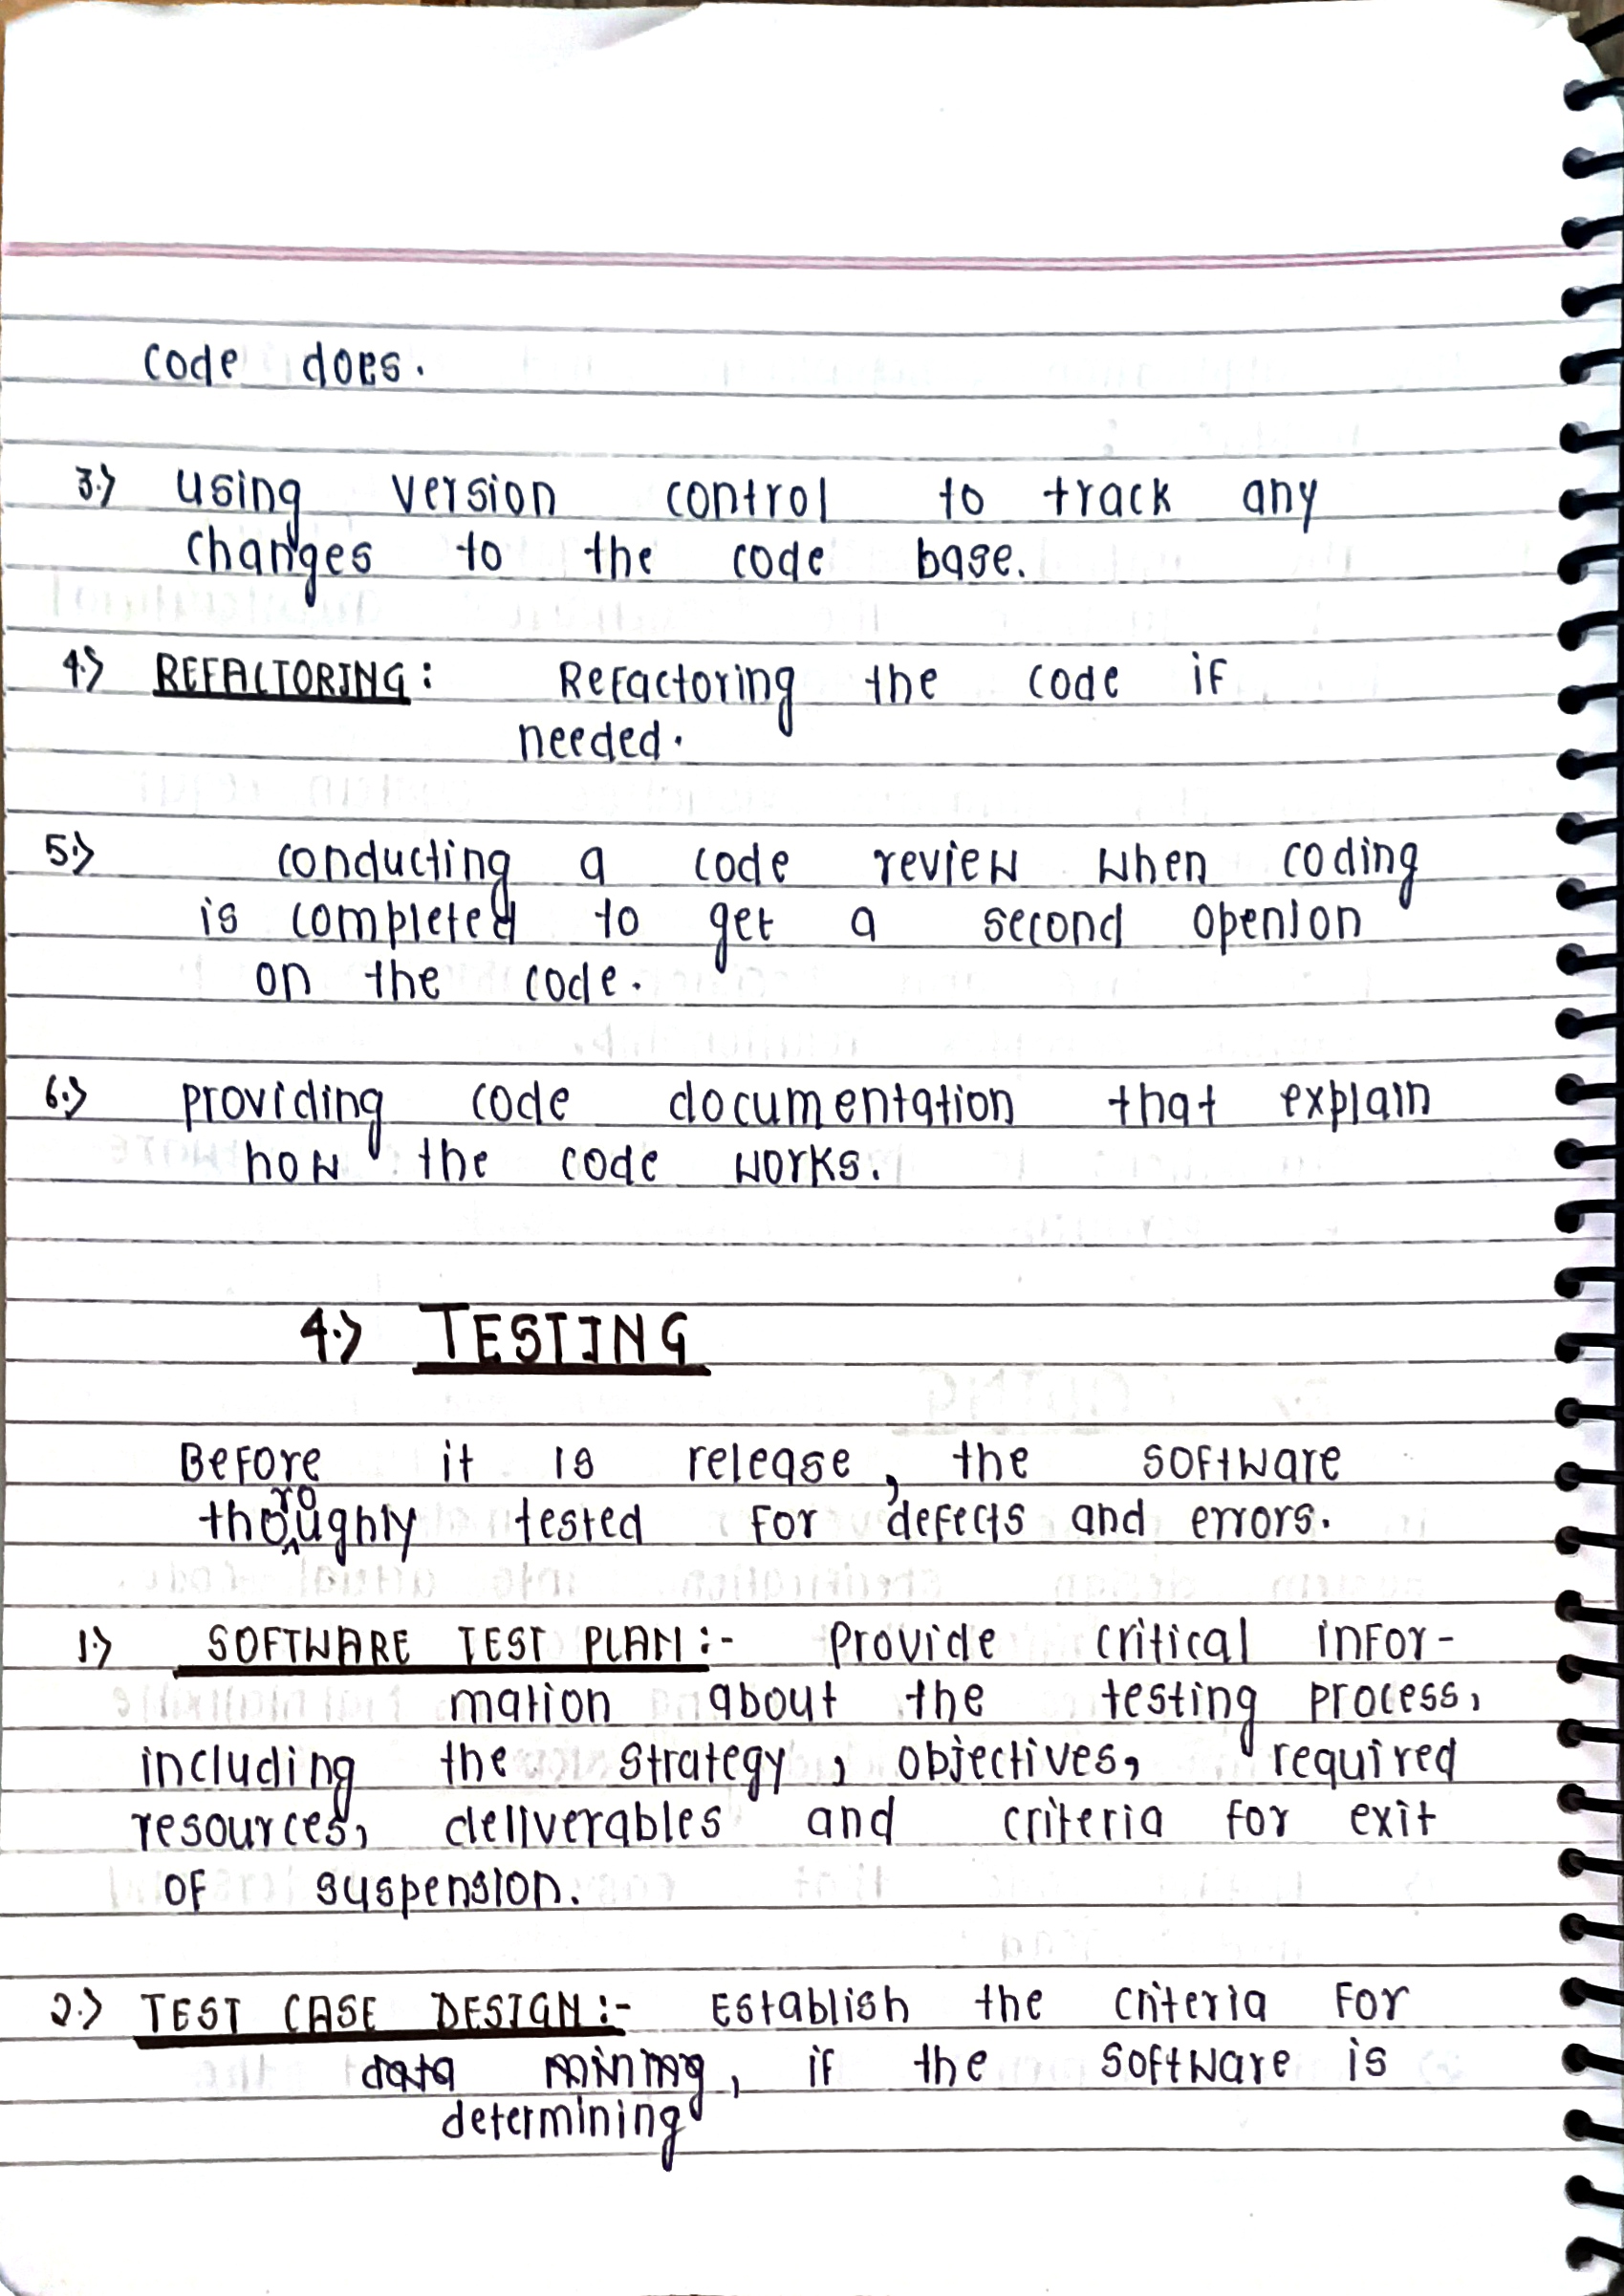 code does.
3.) using version control to track any
changes to the code base.
4.) REFACTORING: Refactoring the code if
needed.
5.) conducting a code review when coding
is completed to get a second openion
on the code.
6.) providing code documentation that explain
how the code works.
4.) TESTING
Before it is release, the software
thoroughly tested for defects and errors.
1.) SOFTWARE TEST PLAN:- Provide critical infor-
mation about the testing process,
including the strategy, objectives, required
resources, deliverables and criteria for exit
of suspension.
2.) TEST CASE DESIGN:- Establish the criteria for
data mining, if the software is
determining